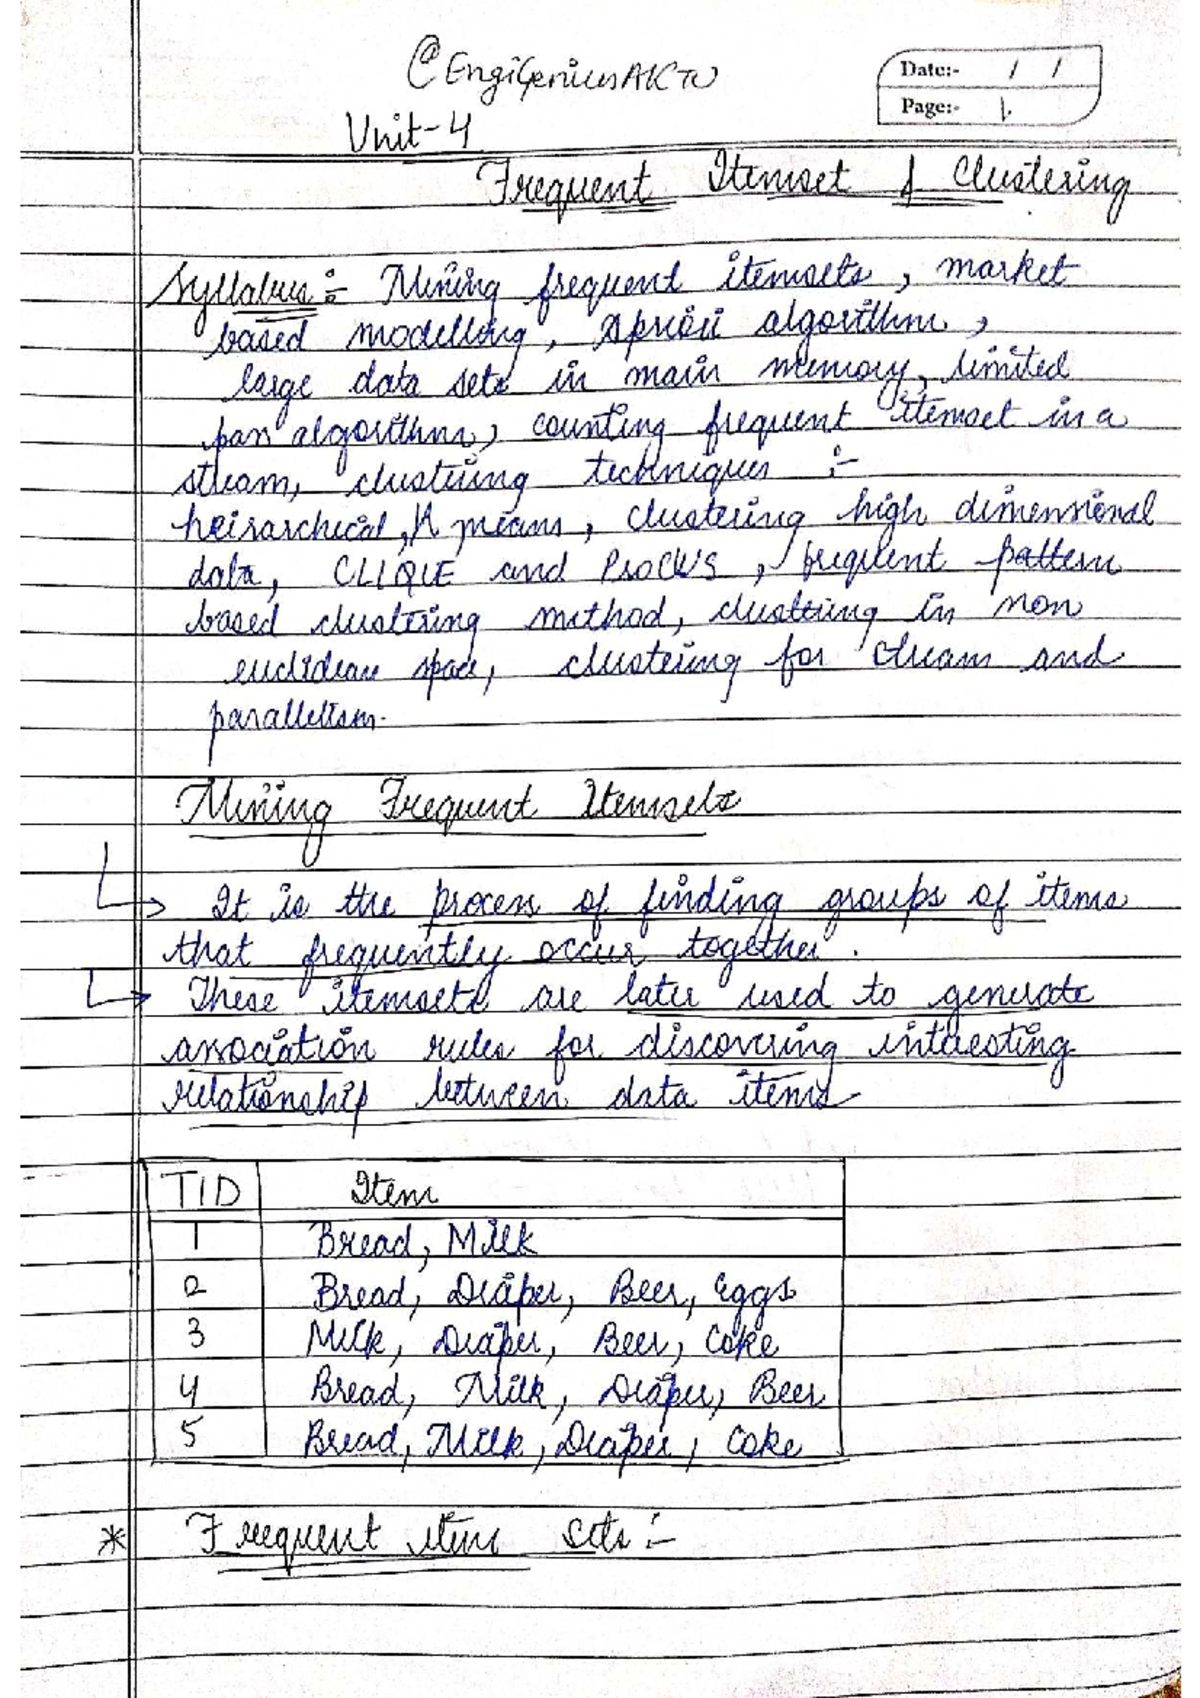 @EngiGeniusAKTU
Date:- / /
Page:- 1.
Unit-4
Frequent Itemset & Clustering
Syllabus :- Mining frequent itemsets, market
based modelling, Apriori algorithm,
large data sets in main memory, limited
pan algorithm, counting frequent itemset in a
stream, clustering techniques :-
heirarchical, K means, clustering high dimensional
data, CLIQUE and ProCLUS, frequent pattern
based clustering method, clustering in non
euclidean space, clustering for stream and
parallelism.
Mining Frequent Itemsets
→ It is the process of finding groups of items
that frequently occur together.
→ These itemsets are later used to generate
association rules for discovering interesting
relationship between data items
TID Item
1 Bread, Milk
2 Bread, Diaper, Beer, Eggs
3 Milk, Diaper, Beer, Coke
4 Bread, Milk, Diaper, Beer
5 Bread, Milk, Diaper, Coke
* Frequent item sets :-